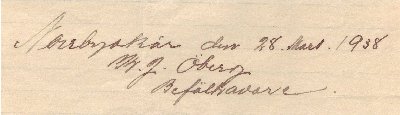 Norrbyskär den 28 Mart. 1938
M. J. Öberg
Befälhavare.